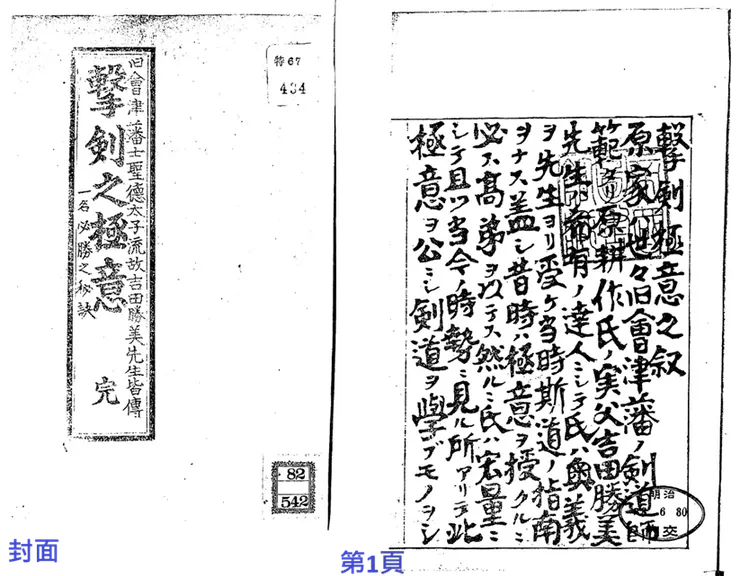 旧會津藩士聖德太子流故吉田勝美先生皆傳
擊劍之極意 完
一名必勝之秘訣
特67
82
542
封面
擊劍極意之叙
原家ハ世々旧會津藩ノ劍道師
範タリ原耕作氏ノ実父吉田勝美
先生ハ希有ノ達人ニシテ氏ハ奥義
ヲ先生ヨリ受ケ当時斯道ノ指南
ヲナス蓋シ昔時ハ極意ヲ授クルニ
必ス高弟ヲ以テス然ルニ氏ハ宏量ニ
シテ且ツ当今ノ時勢ニ見ル所アリテ此
極意ヲ公ニシ剣道ヲ學ブモノヲシ
明治
交
第1頁